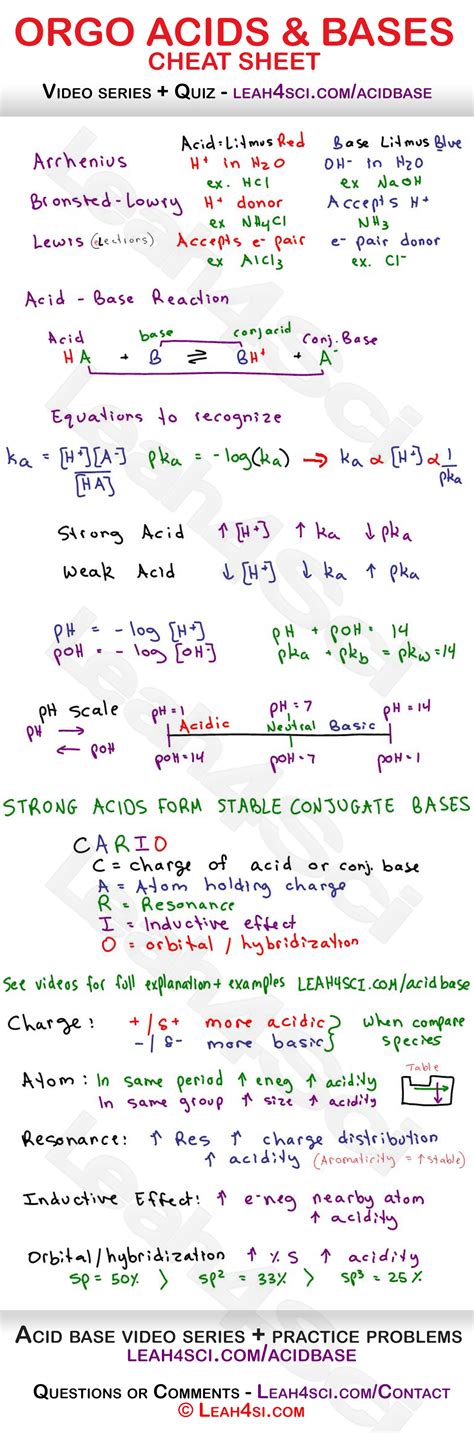 ORGO ACIDS & BASES
CHEAT SHEET
VIDEO SERIES + QUIZ - LEAH4SCI.COM/ACIDBASE
Acid=Litmus Red Base Litmus Blue
Arrhenius H⁺ in H₂O OH- in H₂O
ex. HCl ex NaOH
Bronsted-Lowry H⁺ donor Accepts H⁺
ex NH₄Cl NH₃
Lewis (electrons) Accepts e- pair e- pair donor
ex AlCl₃ ex. Cl⁻
Acid - Base Reaction
Acid base conj acid Conj. Base
HA + B ⇌ BH⁺ + A⁻
Equations to recognize
ka = [H⁺][A⁻]/[HA] pka = -log(ka) → ka α [H⁺] α 1/pka
Strong Acid ↑[H⁺] ↑ ka ↓ pka
Weak Acid ↓[H⁺] ↓ ka ↑ pka
pH = - log [H⁺] pH + pOH = 14
pOH = - log [OH⁻] pka + pkb = pkw = 14
pH scale pH=1 pH=7 pH=14
pH → Acidic Neutral Basic
← pOH pOH=14 pOH=7 pOH=1
STRONG ACIDS FORM STABLE CONJUGATE BASES
CARIO
C = charge of acid or conj. base
A = Atom holding charge
R = Resonance
I = Inductive effect
O = orbital / hybridization
See videos for full explanation + examples LEAH4SCI.COM/acidbase
Charge: +/δ+ more acidic } When compare
-/δ- more basic } species
Atom: In same period ↑ eneg ↑ acidity Table
In same group ↑ size ↑ acidity
Resonance: ↑ Res ↑ charge distribution
↑ acidity (Aromaticity = ↑stable)
Inductive Effect: ↑ e-neg nearby atom
↑ acidity
Orbital/hybridization ↑ % S ↑ acidity
sp = 50% > sp² = 33% > sp³ = 25%
ACID BASE VIDEO SERIES + PRACTICE PROBLEMS
LEAH4SCI.COM/ACIDBASE
QUESTIONS OR COMMENTS - LEAH4SCI.COM/CONTACT
© LEAH4SI.COM
Leah4Sci
Leah4Sci
Leah4Sci
Leah4Sci